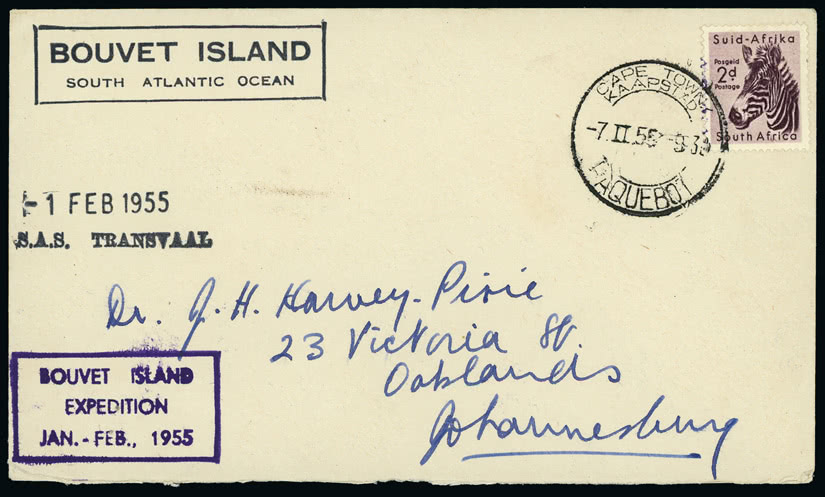 BOUVET ISLAND
SOUTH ATLANTIC OCEAN
Suid-Afrika
Posgeld
2d
Postage
South Africa
CAPE TOWN
KAAPSTAD
-7.II.55 -9 3
PAQUEBOT
-1 FEB 1955
S.A.S. TRANSVAAL
Dr. J. H. Harvey-Pirie
23 Victoria St.
Oaklands
Johannesburg
BOUVET ISLAND
EXPEDITION
JAN.-FEB., 1955